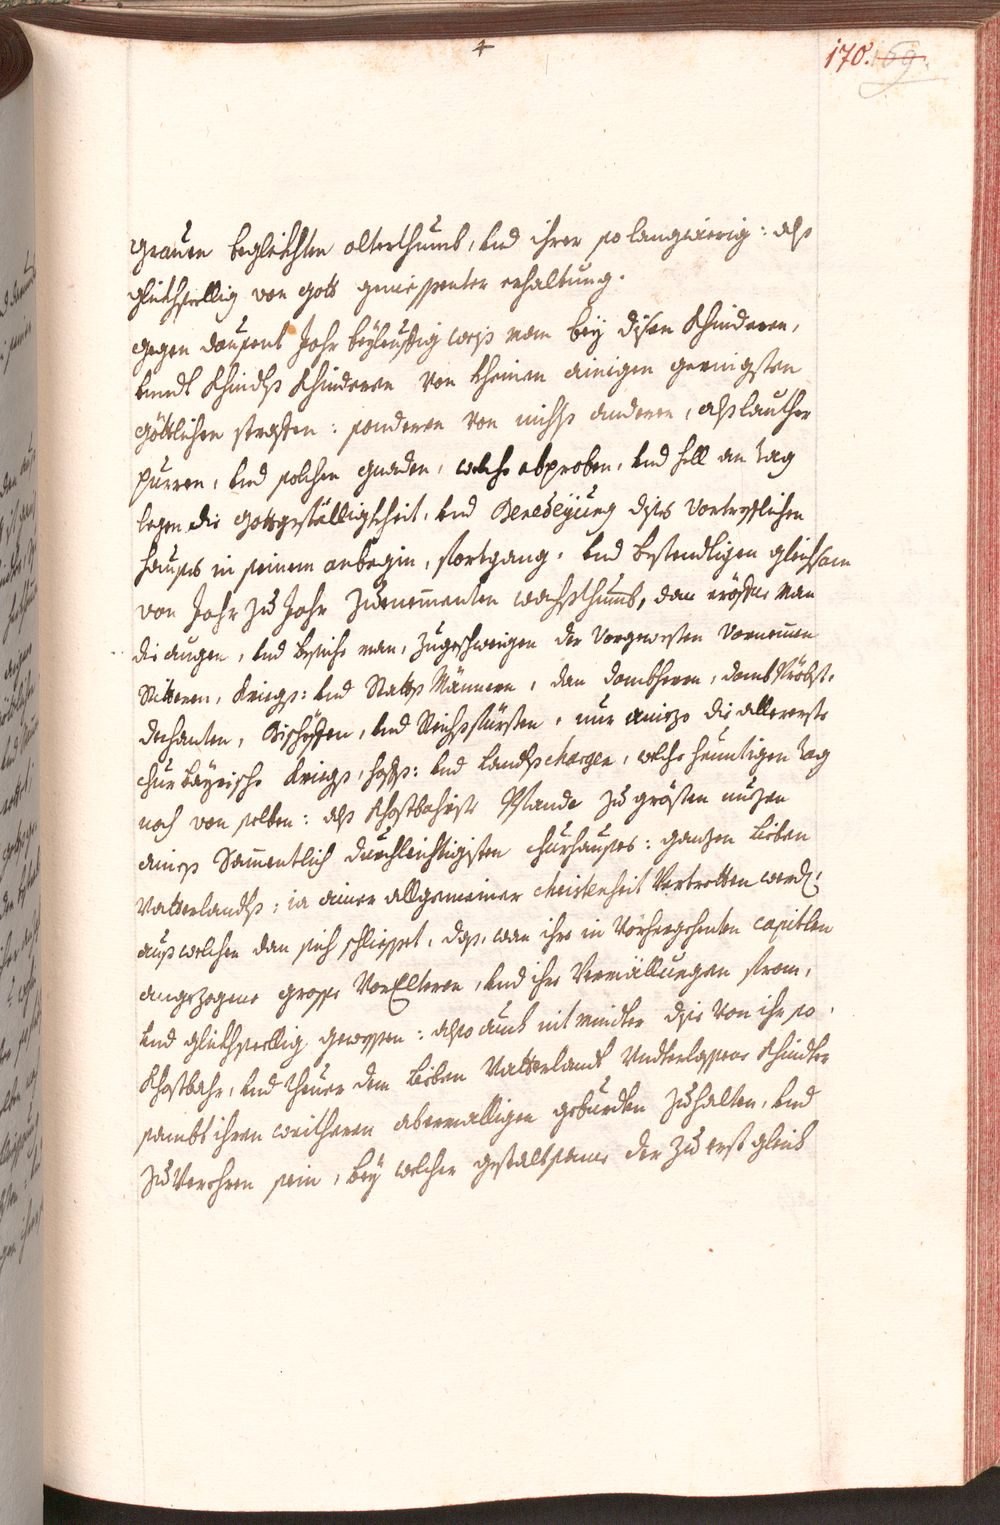 4
170. 169.
grauen beglikhten alterthumb, und ihrer so langwierig: alß
glükhseellig von Gott geniessenter erhaltung.
gegen dausent Jahr beyleüffig weiß man bey disen Khinderen,
unndt Khindtß Khinderen von kheinen ainigen geringsten
göttlichen straffen: sonderen von nichts anderen, alß lauther
purren, und solchen gnaden, welche abproben, und hell an tag
legen die gottsgefälligkheit, und Benedeyung dises vortrefflichen
hauses in seinem anbegin, fortgang, und bestendligen gleichsam
von Jahr zu Jahr zuenementen wachsthumb, dan eröffne man
die augen, und besiche man, zugeschweigen der vorgewesten vornemen
Ritteren, Kriegs: und Statts Männern, den dombherrn, domb Pröbst,
dechanten, Bischöffen, und Reichsfürsten, nur anizo die allererste
chur bayrische Kriegs, hoffs: und Landtschargen, welche heuntigen tag
noch von selben: alß khostbahriste Pfande zu grösten nuzen
aineß Samentlich durchleichtigisten churhauses: ganzen lieben
Vatterlandtß: ia ainer allgemeiner christenheit vertretten werdt,
auß welchen dan sich schliesset, daß, wan ihre in vorhergehenten capitlen
angezogene grosse VorElteren, und ihre Vermällungen from,
und glükhseellig gewessen: also auch nit minder dise von ihr so
khostbahr, und theuer dem lieben Vatterlandt underlassene Khinder
sambt ihren weitheren abermalligen geburdten zuhalten, und
zuverehren sein, bey welcher gestaltsame der zu erst gleich